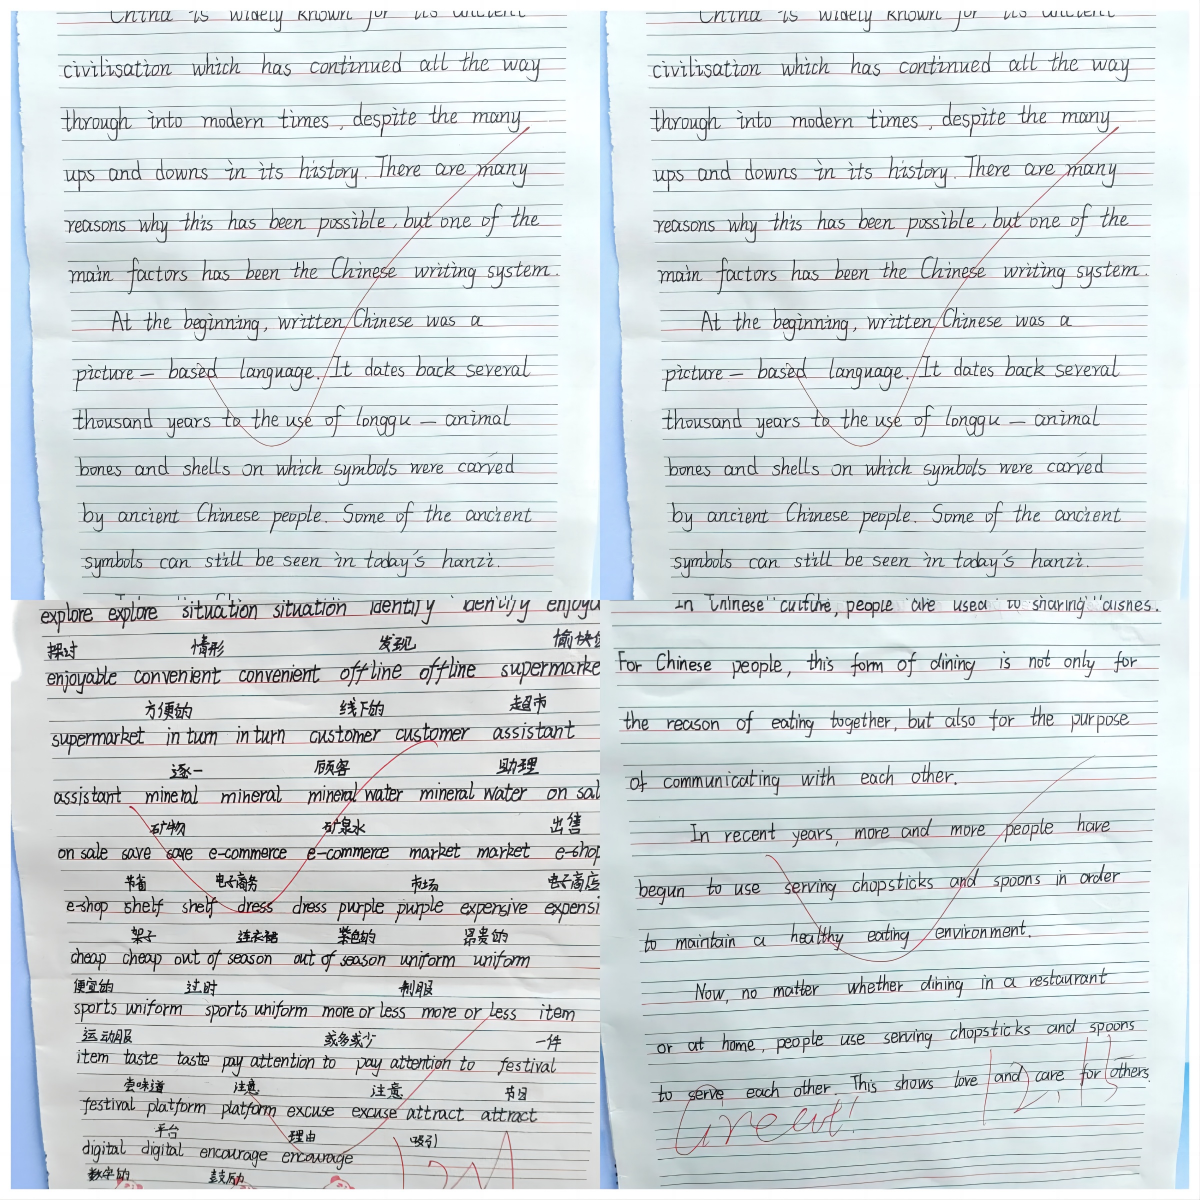 China is widely known for its ancient
civilisation which has continued all the way
through into modern times, despite the many
ups and downs in its history. There are many
reasons why this has been possible, but one of the
main factors has been the Chinese writing system.
At the beginning, written Chinese was a
picture — based language. It dates back several
thousand years to the use of longgu — animal
bones and shells on which symbols were carved
by ancient Chinese people. Some of the ancient
symbols can still be seen in today's hanzi.
China is widely known for its ancient
civilisation which has continued all the way
through into modern times, despite the many
ups and downs in its history. There are many
reasons why this has been possible, but one of the
main factors has been the Chinese writing system.
At the beginning, written Chinese was a
picture — based language. It dates back several
thousand years to the use of longgu — animal
bones and shells on which symbols were carved
by ancient Chinese people. Some of the ancient
symbols can still be seen in today's hanzi.
explore explore situation situation identify identify enjoya
探讨 情形 发现 愉快
enjoyable convenient convenient offline offline supermarke
方便的 线下的 超市
supermarket in turn in turn customer customer assistant
逐一 顾客 助理
assistant mineral mineral mineral water mineral water on sal
矿物 矿泉水 出售
on sale save save e-commerce e-commerce market market e-shop
节省 电子商务 市场 电子商店
e-shop shelf shelf dress dress purple purple expensive expensi
架子 连衣裙 紫色的 昂贵的
cheap cheap out of season out of season uniform uniform
便宜的 过时 制服
sports uniform sports uniform more or less more or less item
运动服 或多或少 一件
item taste taste pay attention to pay attention to festival
尝味道 注意 注意 节日
festival platform platform excuse excuse attract attract
平台 理由 吸引
digital digital encourage encourage
数字的 鼓励
In Chinese culture, people are used to sharing dishes.
For Chinese people, this form of dining is not only for
the reason of eating together, but also for the purpose
of communicating with each other.
In recent years, more and more people have
begun to use serving chopsticks and spoons in order
to maintain a healthy eating environment.
Now, no matter whether dining in a restaurant
or at home, people use serving chopsticks and spoons
to serve each other. This shows love and care for others.
Great! 12.13